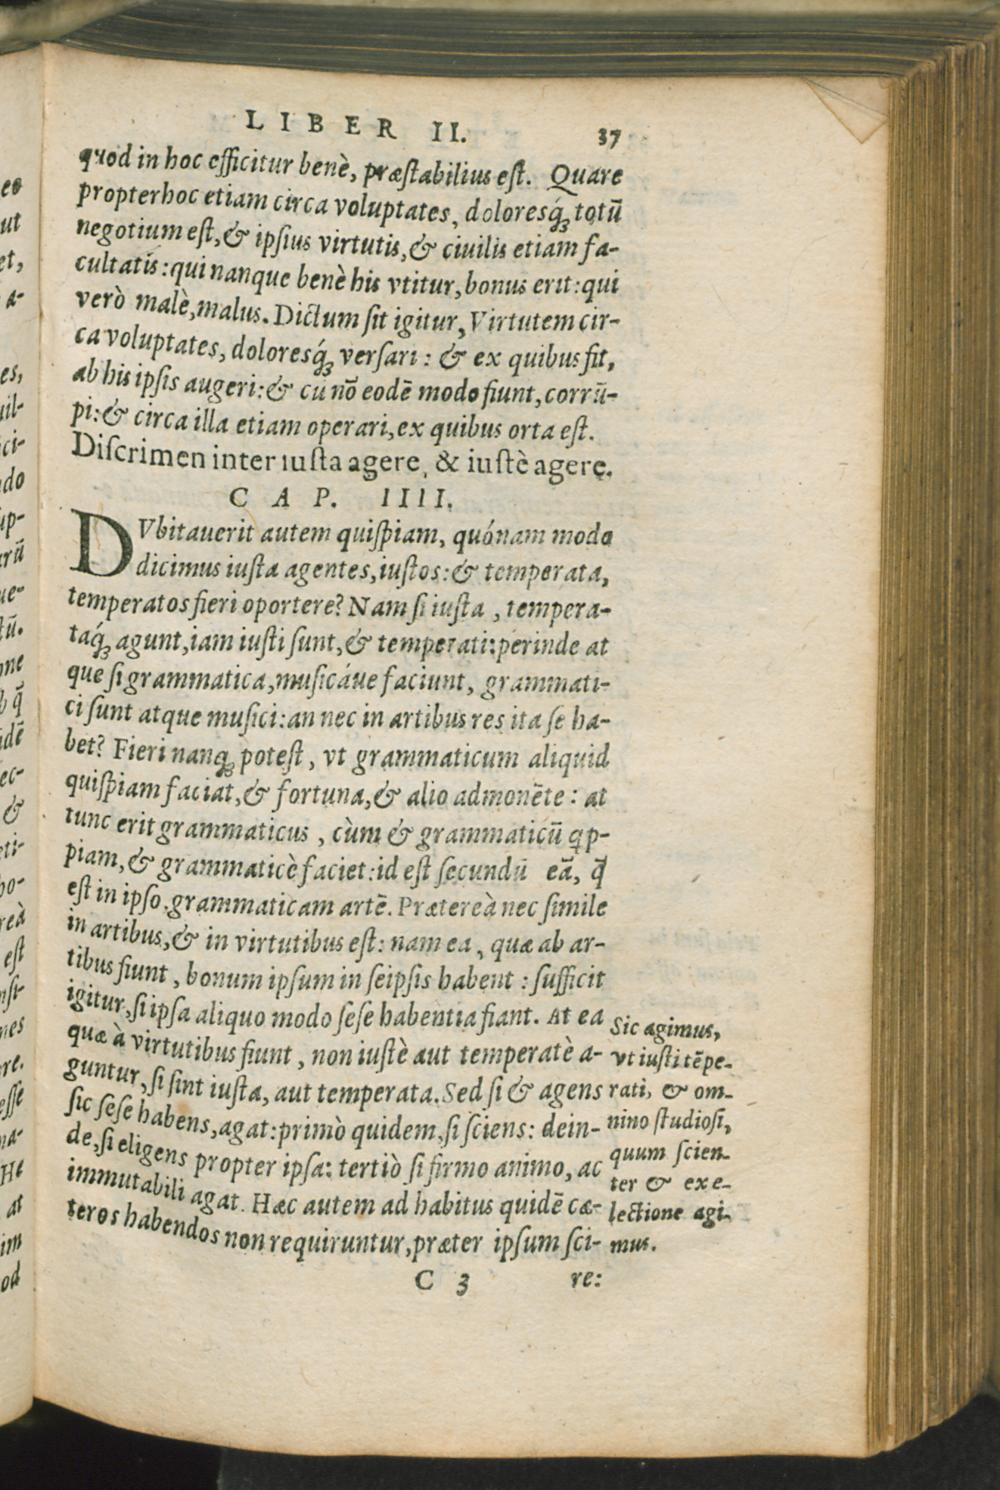 LIBER II. 37
quod in hoc efficitur benè, præstabilius est. Quare
propterhoc etiam circa voluptates, doloresq́ꝫ totū
negotium est, & ipsius virtutis, & ciuilis etiam fa-
cultatis: qui nanque benè his vtitur, bonus erit: qui
verò malè, malus. Dictum sit igitur, Virtutem cir-
ca voluptates, doloresq́ꝫ versari: & ex quibus fit,
ab his ipsis augeri: & cū nō eodē modo fiunt, corrū-
pi: & circa illa etiam operari, ex quibus orta est.
Discrimen inter iusta agere, & iustè agere.
CAP. IIII.
DVbitauerit autem quispiam, quónam modo
dicimus iusta agentes, iustos: & temperata,
temperatos fieri oportere? Nam si iusta, tempera-
taq́ꝫ agunt, iam iusti sunt, & temperati: perinde at
que si grammatica, musicáue faciunt, grammati-
ci sunt atque musici: an nec in artibus res ita se ha-
bet? Fieri nanqꝫ potest, vt grammaticum aliquid
quispiam faciat, & fortuna, & alio admonēte: at
tunc erit grammaticus, cùm & grammaticū
piam, & grammaticè faciet: id est secundū eā, q̄
est in ipso grammaticam artē. Prætereà nec simile
in artibus, & in virtutibus est: nam ea, quæ ab ar-
tibus fiunt, bonum ipsum in seipsis habent: sufficit
igitur, si ipsa aliquo modo sese habentia fiant. At ea
quæ à virtutibus fiunt, non iustè aut temperatè a-
guntur, si sint iusta, aut temperata. Sed si & agens
sic sese habens, agat: primò quidem, si sciens: dein-
de, si eligens propter ipsa: tertiò si firmo animo, ac
immutabili agat. Hæc autem ad habitus quidē cæ-
teros habendos non requiruntur, præter ipsum sci-
C 3 re:
Sic agimus,
vt iusti tēpe-
rati, & om-
nino studiosi,
quum scien-
ter & ex e-
lectione agi-
mus.
eo
ut
et,
a-
es,
uil-
ci-
do
up-
rū
ue-
tū.
ne
b q̄
dē
ec-
&
ti-
bo-
reà
est
nst-
nes
re.
esse
na-
He
at
im
od